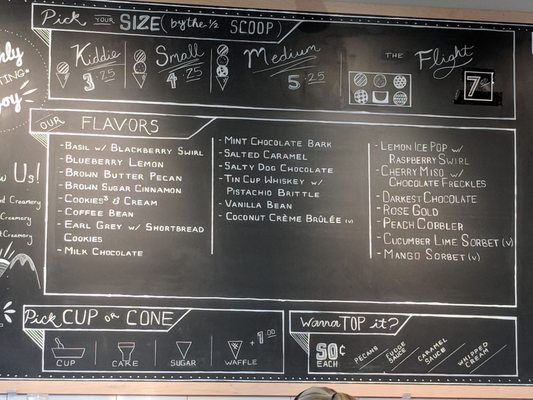 Pick YOUR SIZE (by the ½ SCOOP)
Kiddie 3.25
Small 4.25
Medium 5.25
THE Flight 7
OUR FLAVORS
- Basil w/ Blackberry Swirl
- Blueberry Lemon
- Brown Butter Pecan
- Brown Sugar Cinnamon
- Cookies³ & Cream
- Coffee Bean
- Earl Grey w/ Shortbread
Cookies
- Milk Chocolate
- Mint Chocolate Bark
- Salted Caramel
- Salty Dog Chocolate
- Tin Cup Whiskey w/
Pistachio Brittle
- Vanilla Bean
- Coconut Crème Brûlée (v)
- Lemon Ice Pop w/
Raspberry Swirl
- Cherry Miso w/
Chocolate Freckles
- Darkest Chocolate
- Rose Gold
- Peach Cobbler
- Cucumber Lime Sorbet (v)
- Mango Sorbet (v)
Us!
Creamery
Creamery
Creamery
Pick CUP or CONE
CUP
CAKE
SUGAR
WAFFLE +1.00
Wanna TOP it?
50¢
EACH
PECANS
FUDGE
SAUCE
CARAMEL
SAUCE
WHIPPED
CREAM